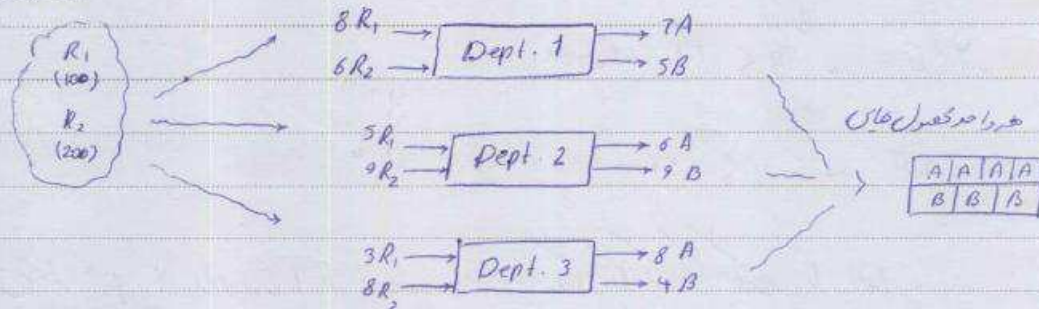 R₁
(100)
R₂
(200)
8R₁
6R₂
Dept. 1
7A
5B
5R₁
9R₂
Dept. 2
6A
9B
3R₁
8R₂
Dept. 3
8A
4B
هر واحد محصول نهایی
A A A A
B B B